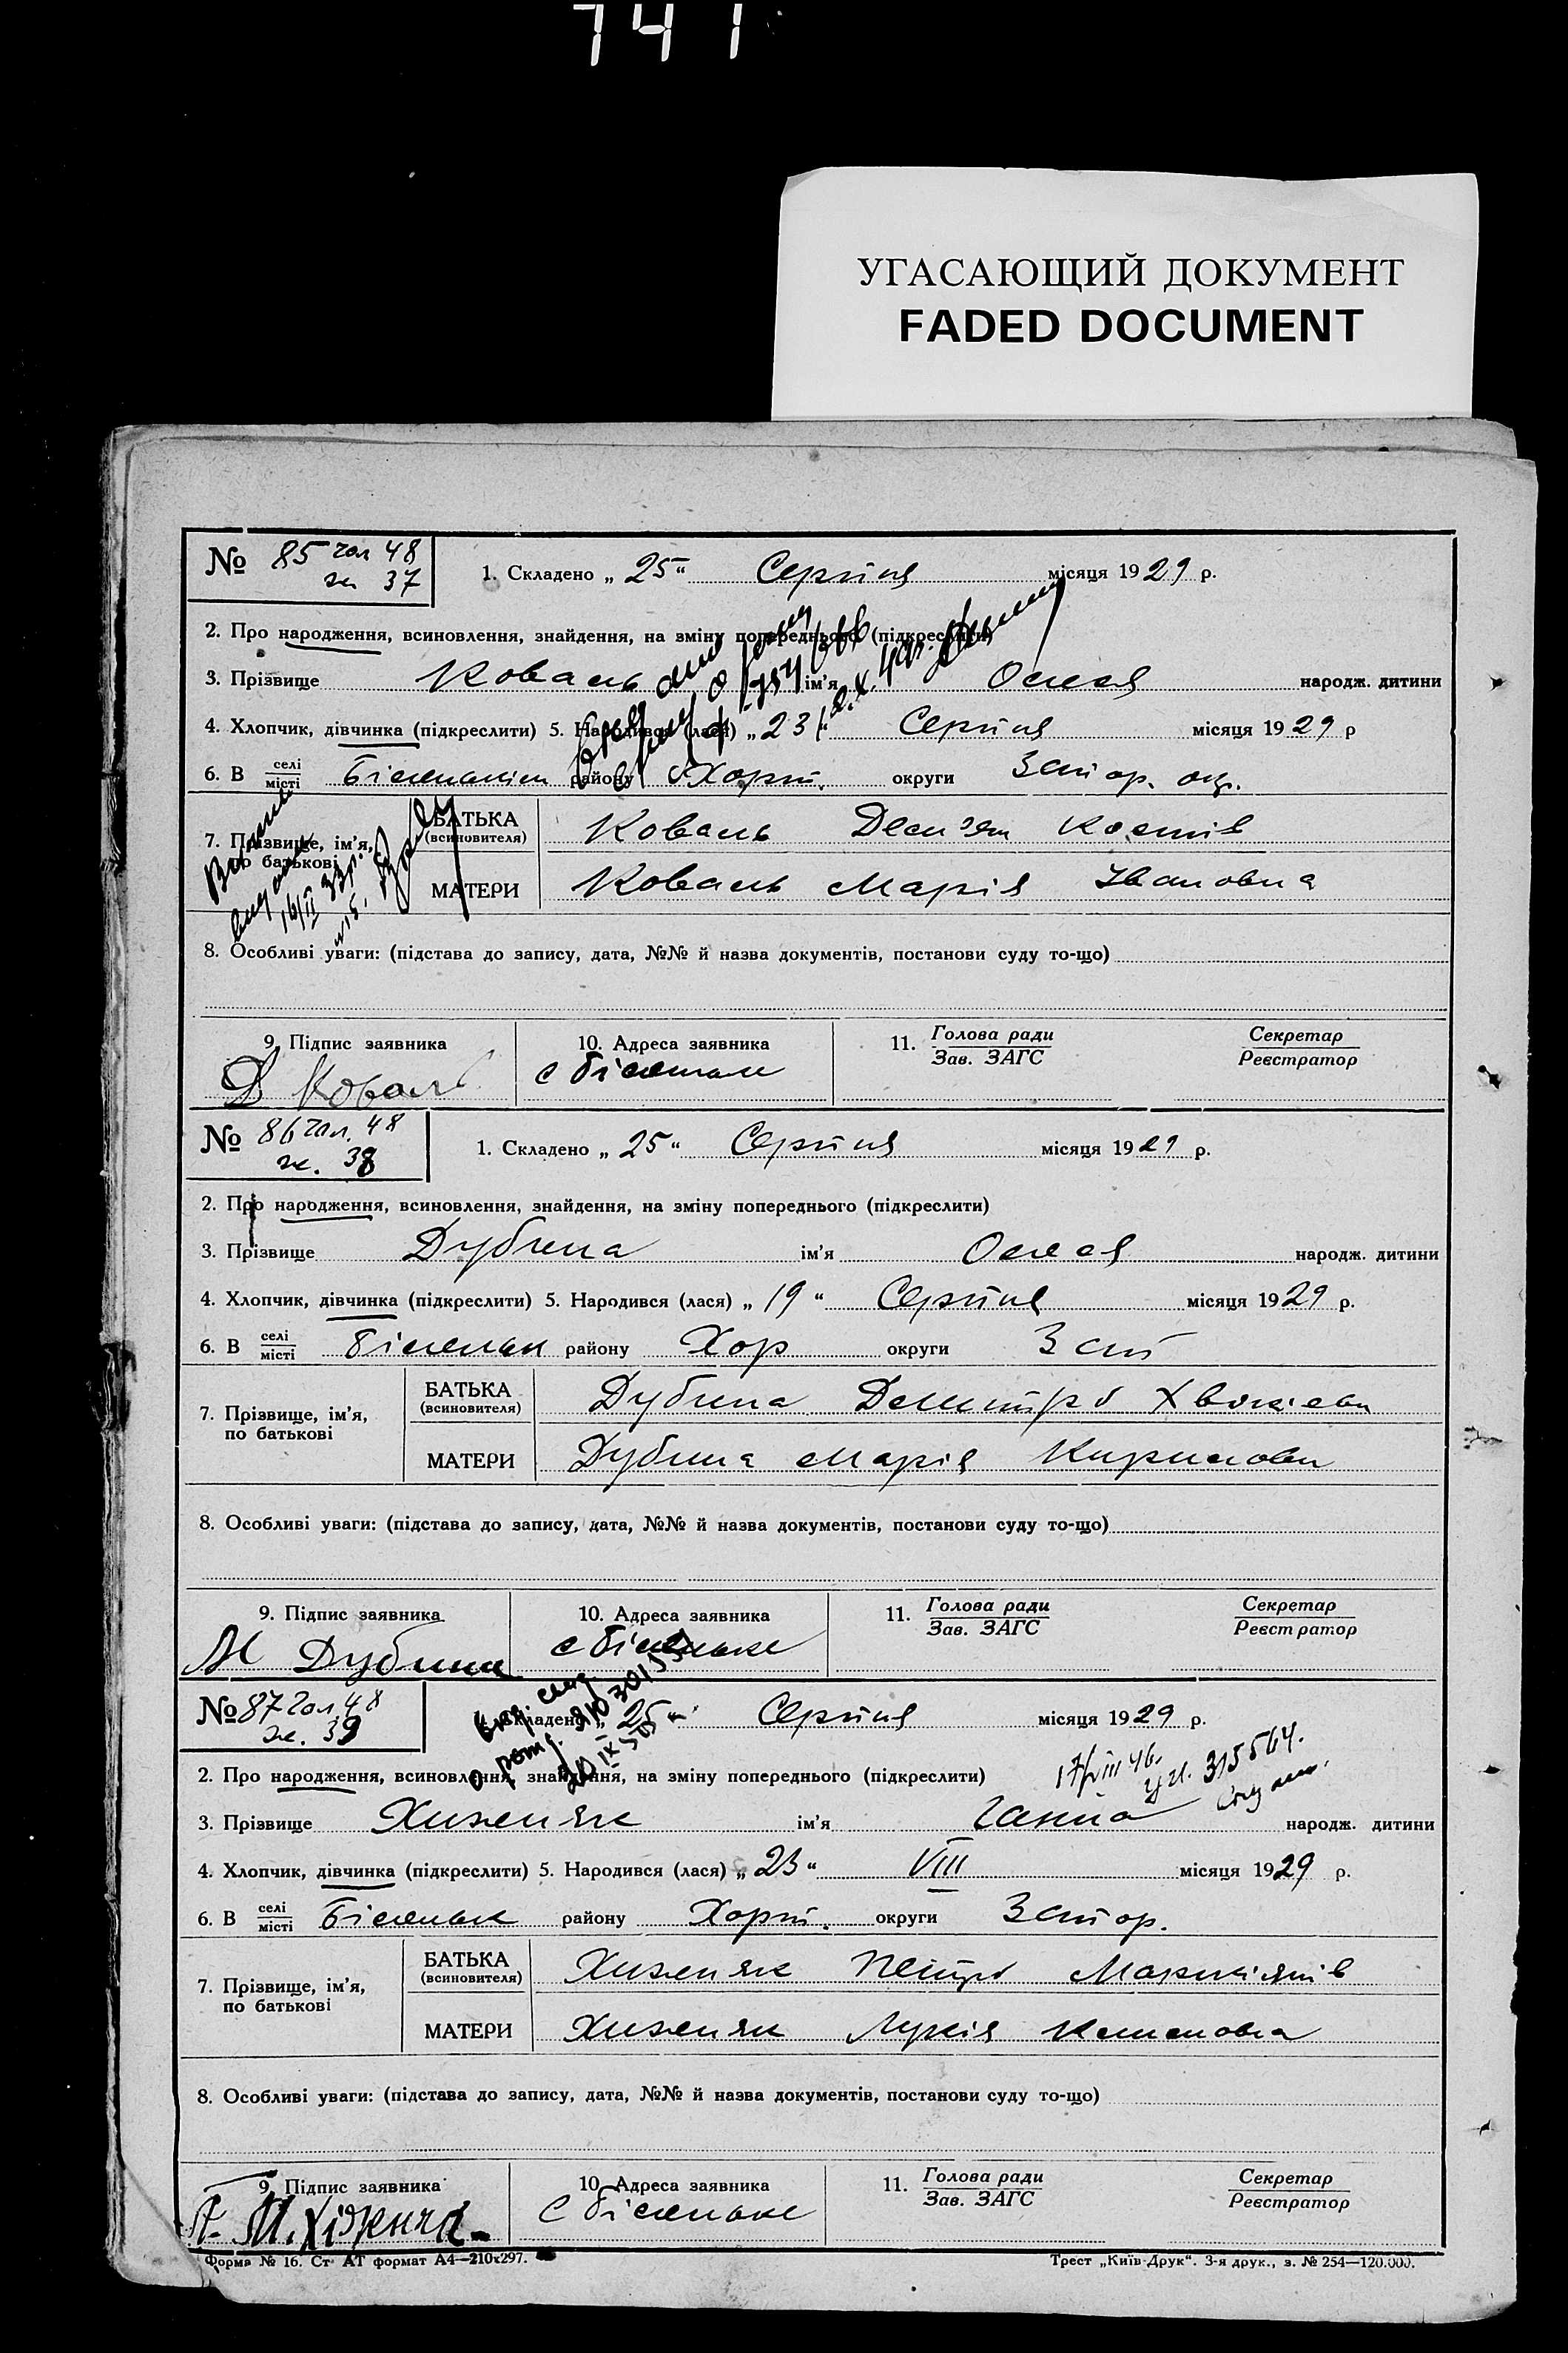 741
УГАСАЮЩИЙ ДОКУМЕНТ
FADED DOCUMENT
№ 85 чол 48
ж 37
1. Складено „ 25 “ Серпня місяця 1929 р.
2. Про народження, всиновлення, знайдення, на зміну попереднього (підкреслити)
3. Прізвище Коваль ім’я Олекса народж. дитини
4. Хлопчик, дівчинка (підкреслити) 5. Народився (лася) „ 23 “ Серпня місяця 1929 р
6. В селі/місті району Хорт. округи Запор. окр.
7. Прізвище, ім’я, по батькові
БАТЬКА (всиновителя) Коваль Дем’ян Костів
МАТЕРИ Коваль Марія Івановна
16/II 33р.
8. Особливі уваги: (підстава до запису, дата, №№ й назва документів, постанови суду то-що)
9. Підпис заявника
10. Адреса заявника
11. Голова ради / Зав. ЗАГС
Секретар / Реєстратор
Д Коваль
с Біленьке
№ 86 чол. 48
ж. 38
1. Складено „ 25 “ Серпня місяця 1929 р.
2. Про народження, всиновлення, знайдення, на зміну попереднього (підкреслити)
3. Прізвище Дубина ім’я народж. дитини
4. Хлопчик, дівчинка (підкреслити) 5. Народився (лася) „ 19 “ Серпня місяця 1929 р.
6. В селі/місті Біленьк району Хор округи Зап
7. Прізвище, ім’я, по батькові
БАТЬКА (всиновителя) Дубина Демитро
МАТЕРИ Дубина Марія Кирилов
8. Особливі уваги: (підстава до запису, дата, №№ й назва документів, постанови суду то-що)
9. Підпис заявника
10. Адреса заявника
11. Голова ради / Зав. ЗАГС
Секретар / Реєстратор
М Дубина
с Біленьке
№ 87 чол. 48
ж. 39
1. Складено „ 25 “ Серпня місяця 1929 р.
17/VIII 46.
315564.
2. Про народження, всиновлення, знайдення, на зміну попереднього (підкреслити)
3. Прізвище Хижняк ім’я Ганна народж. дитини
4. Хлопчик, дівчинка (підкреслити) 5. Народився (лася) „ 23 “ VIII місяця 1929 р.
6. В селі/місті Біленьк району Хорт. округи Запор.
7. Прізвище, ім’я, по батькові
БАТЬКА (всиновителя) Хижняк Петро
МАТЕРИ Хижняк Лукія
8. Особливі уваги: (підстава до запису, дата, №№ й назва документів, постанови суду то-що)
9. Підпис заявника
10. Адреса заявника
11. Голова ради / Зав. ЗАГС
Секретар / Реєстратор
с Біленьке
Форма № 16. Ст АТ формат А4—210х297.
Трест „Київ-Друк“. 3-я друк., з. № 254—120.000.